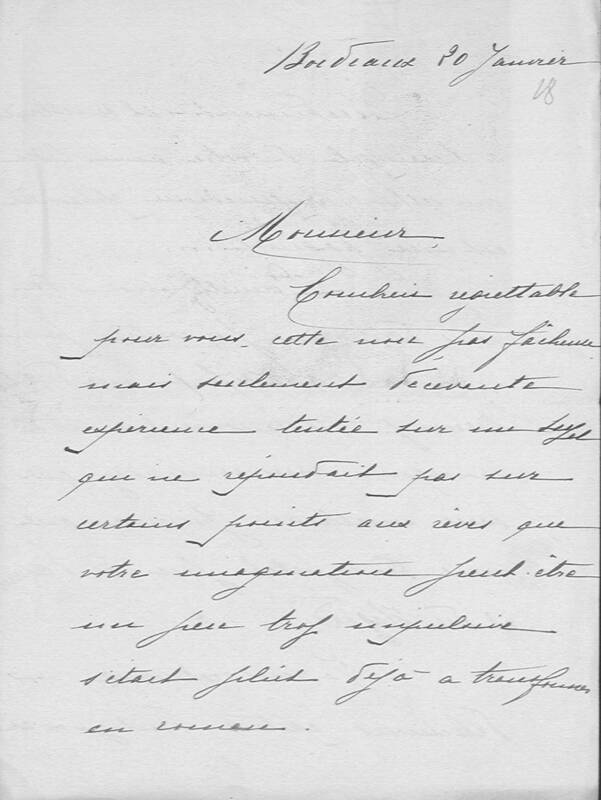 Bordeaux 20 Janvier
18
Monsieur,
Combien regrettable
pour vous, cette non pas fâcheuse
mais seulement décevante
expérience tentée sur un sujet
qui ne répondait pas sur
certains points aux rêves que
votre imagination peut-être
un peu trop impulsive
s'était plut déjà a transformer
en roman.